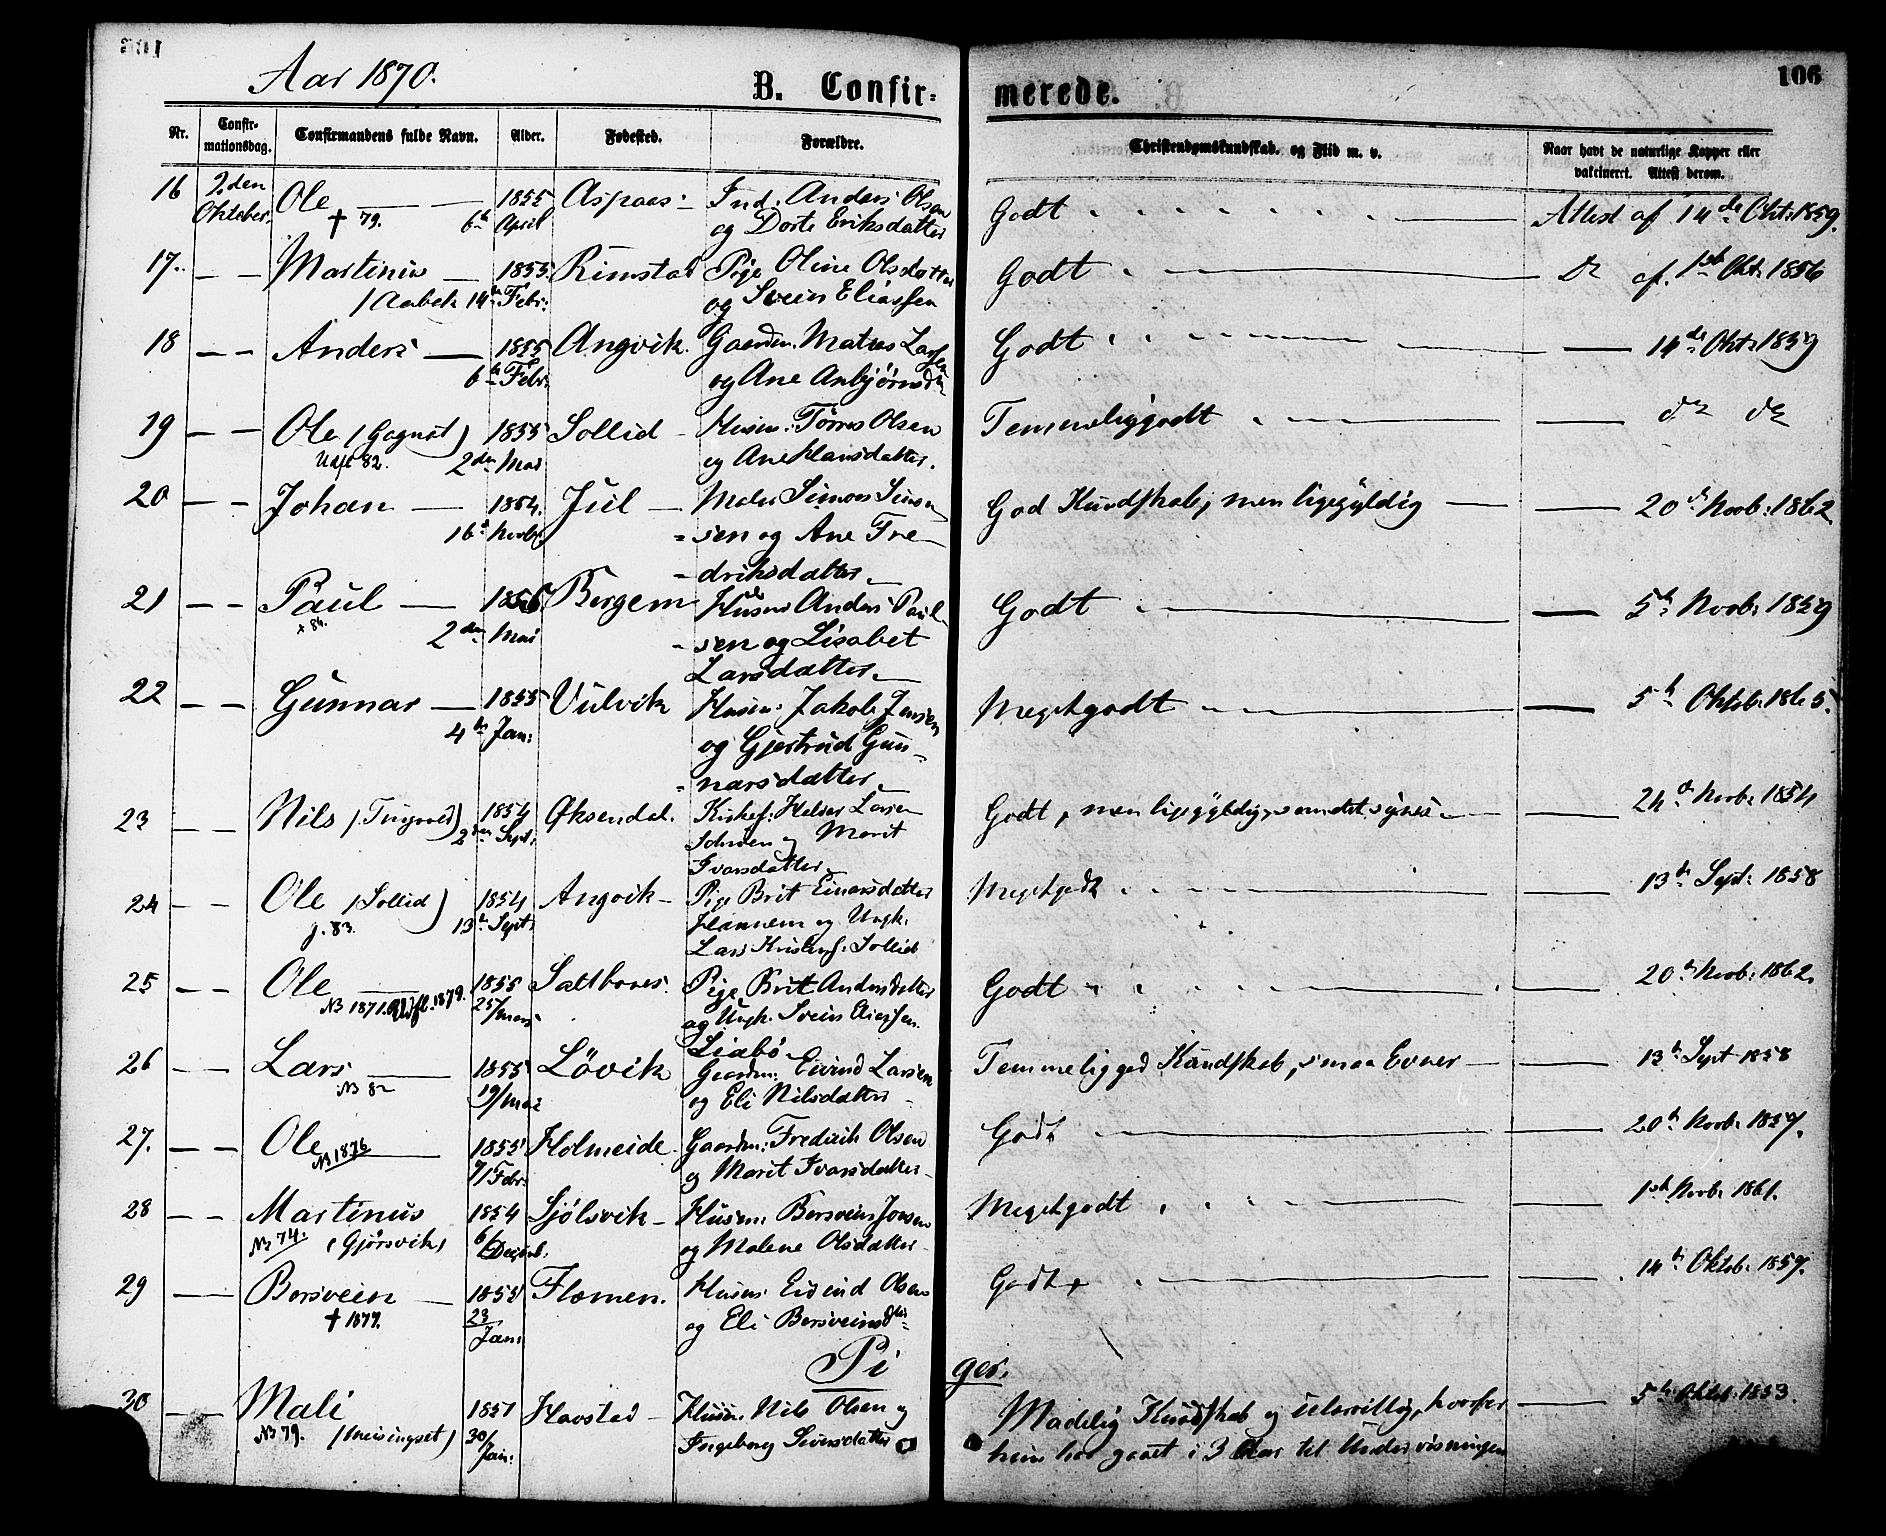 Aar 1870.
B. Confir-
merede.
106
Nr.
Confir-
mationsdag.
Confirmandens fulde Navn.
Alder.
Fødested.
Forældre.
Christendomskundskab og Flid m. v.
Naar havt de naturlige Kopper eller
vaccineret. Attest derom.
16 2den Oktober. Ole — — 1855 Aspaas - Ind. Anders Olsen Godt — Attest af 14de Okt: 1859.
† 79. 6te April og Dorte Eriksdatter
17. — — Martinus — 1855 Rimstad Pige Oline Olsdatter Godt — Do af 1ste Okt. 1856
(Aarbok 14de Febr: og Svein Eliassen
18 — — Anders — 1855 Angvik. Gaardm. Matias Larsen Godt — 14de Okt: 1859
6te Febr: og Ane Anbjørnsdtr
19 — — Ole (Gagnat) 1855 Sollid - Husm. Tørres Olsen Temmeliggodt — do do
Udfl 82. 2den Mai og Ane Hansdatter.
20 — — Johan — 1854. Jul — Maler Simon Simon God Kundskab, men ligegyldig — 20de Novb: 1862
16de Novb: -sen og Ane Fre-
-driksdatter —
21 — — Paul — 1856 Bergem Husm Anders Paul- Godt — 5te Novb: 1859
+ 84. 2den Mai -sen og Lisabet
Larsdatter —
22 — — Gunnar — 1855 Vulvik Husm: Jakob Jensen Megetgodt — 5te Oktob: 1865.
4de Jan: og Gjertrud Gun-
-narsdatter —
23 — — Nils (Tingvold) 1854 Øksendal. Kirkes: Helser Larsen Godt, men ligegyldig, som det synes — 24de Novb: 1854
2den Sept: og Marit
Ivarsdatter
24 — — Ole (Sollid) 1854 Angvik — Pige Brit Einarsdatter Megetgodt — 13de Sept: 1858
g. 83. 13de Sept: Hannem og Ungk.
Lars Kristens: Sollid
25 — — Ole — 1855 Saltbones. Pige Brit Andersdatter Godt — 20de Novb: 1862.
NB 1871. Udfl. 1879. 25/Mars og Ungk. Svein Eliassen
Liabö
26 — — Lars — 1855 Lövik Gaardm: Eivind Larsen Temmelig god Kundskab, smaa Evner — 13de Sept 1858
NB 82 19/Mai og Eli Nilsdatter
27. — — Ole — 1855 Holmeide Gaardm: Fredrik Olsen Godt — 20de Novb: 1857.
NB 1876 7/Febr: og Marit Ivarsdatter
28 — — Martinus 1854 Sjølsvik — Husm: Bersvein Jonsen Megetgodt — 1ste Novb: 1861.
NB 74. (Gjørsvik) 6/Decemb. og Malene Olsdatter
29 — Bersvein — 1855 Flemen. Husm: Eivind Olsen Godt, — 14de Oktob: 1857.
† 1877. 23 Jan: og Eli Bersveinsdtr
Pi ger.
30 — — Mali 1851 Havstad — Husm. Nils Olsen og Maadelig Kundskab og uelvillig, hvorfor — 5te Oktob: 1853.
NB 79. (Meisingset) 30/Jan: Ingeborg Siversdatter hun har gaaet i 3 Aar til Undervisningen